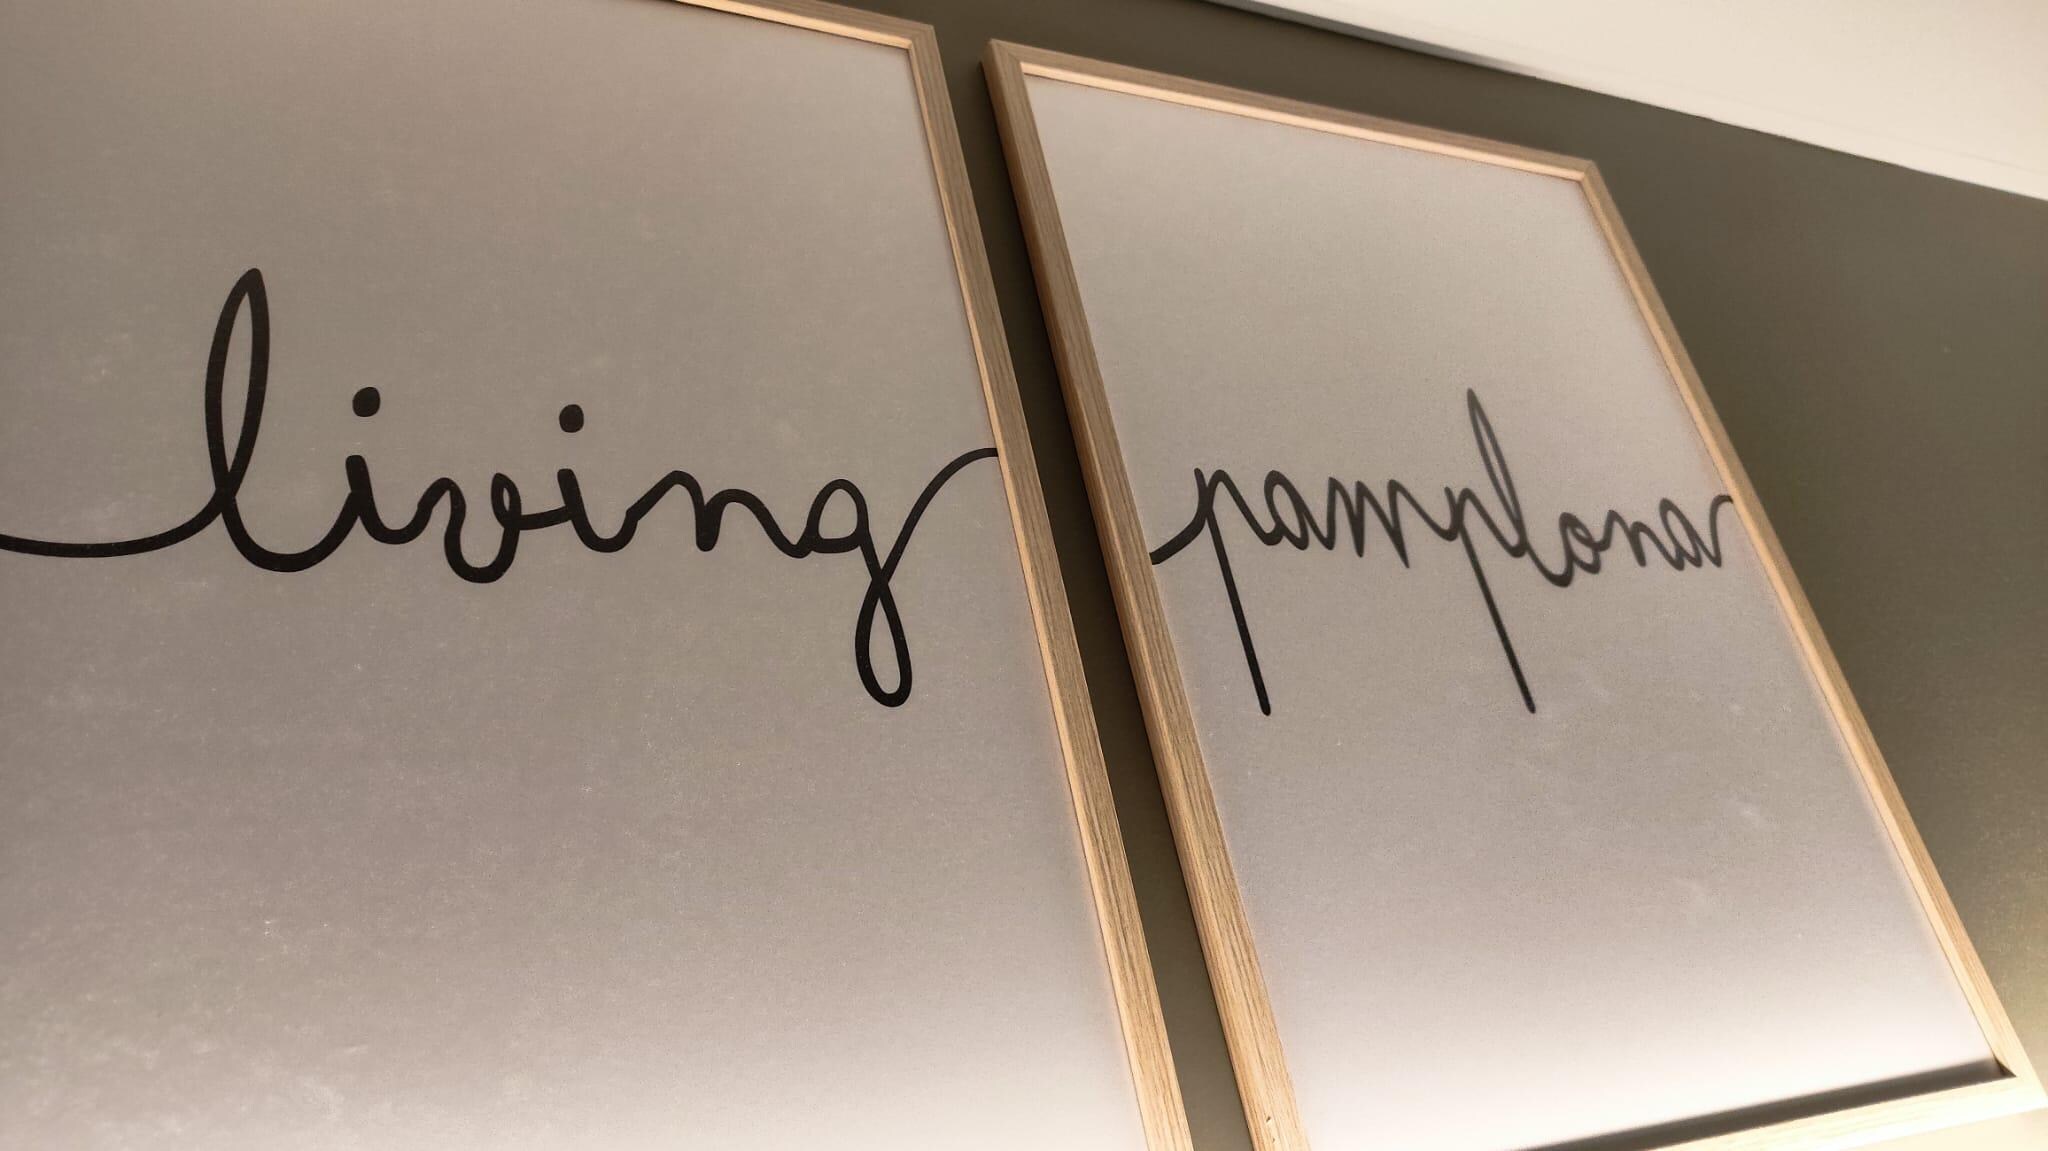 living pamplona